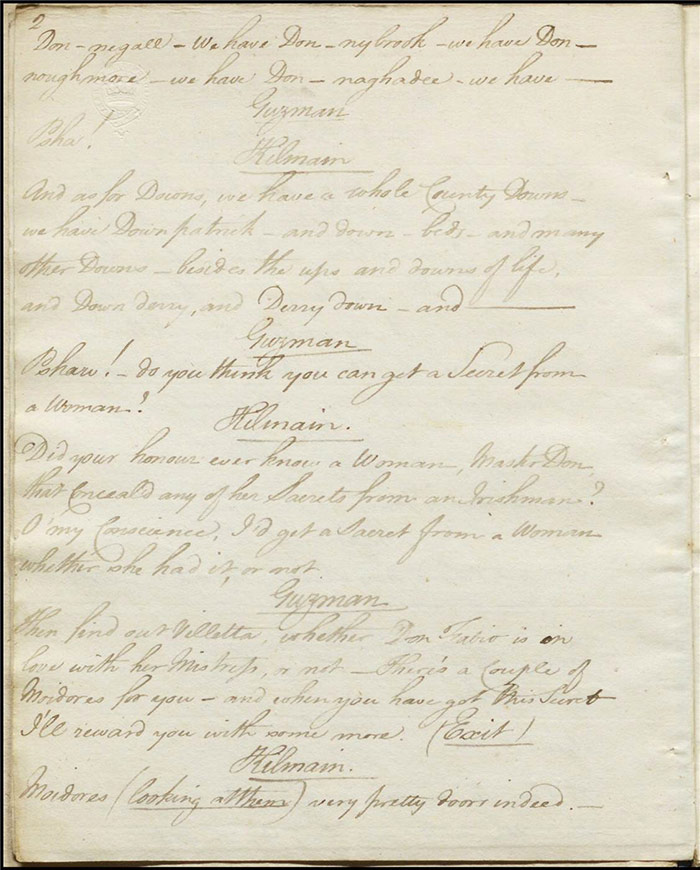 2
Don - negall - We have Don - nybrook - we have Don -
noughmore - we have Don - naghadee - we have ——
Guzman
Psha!
Kilmain
And as for Downs, we have a whole County Downs -
we have Down patrick - and down - beds - and many
other Downs - besides the ups and downs of life,
and Down derry, and Derry down - and ———
Guzman
Pshaw! - do you think you can get a Secret from
a Woman?
Kilmain.
Did your honour ever know a Woman, Mastr Don
that Conceald any of her Sacrets from an Irishman?
O' my Conscience, I'd get a Sacret from a Woman
whether she had it, or not
Guzman
Then find out Villetta, whether Don Fabio is in
love with her Mistress, or not - There's a Couple of
Moidores for you - and when you have got this Secret
I'll reward you with some more. (Exit)
Kilmain.
Moidores (looking at them) very pretty doors indeed. -